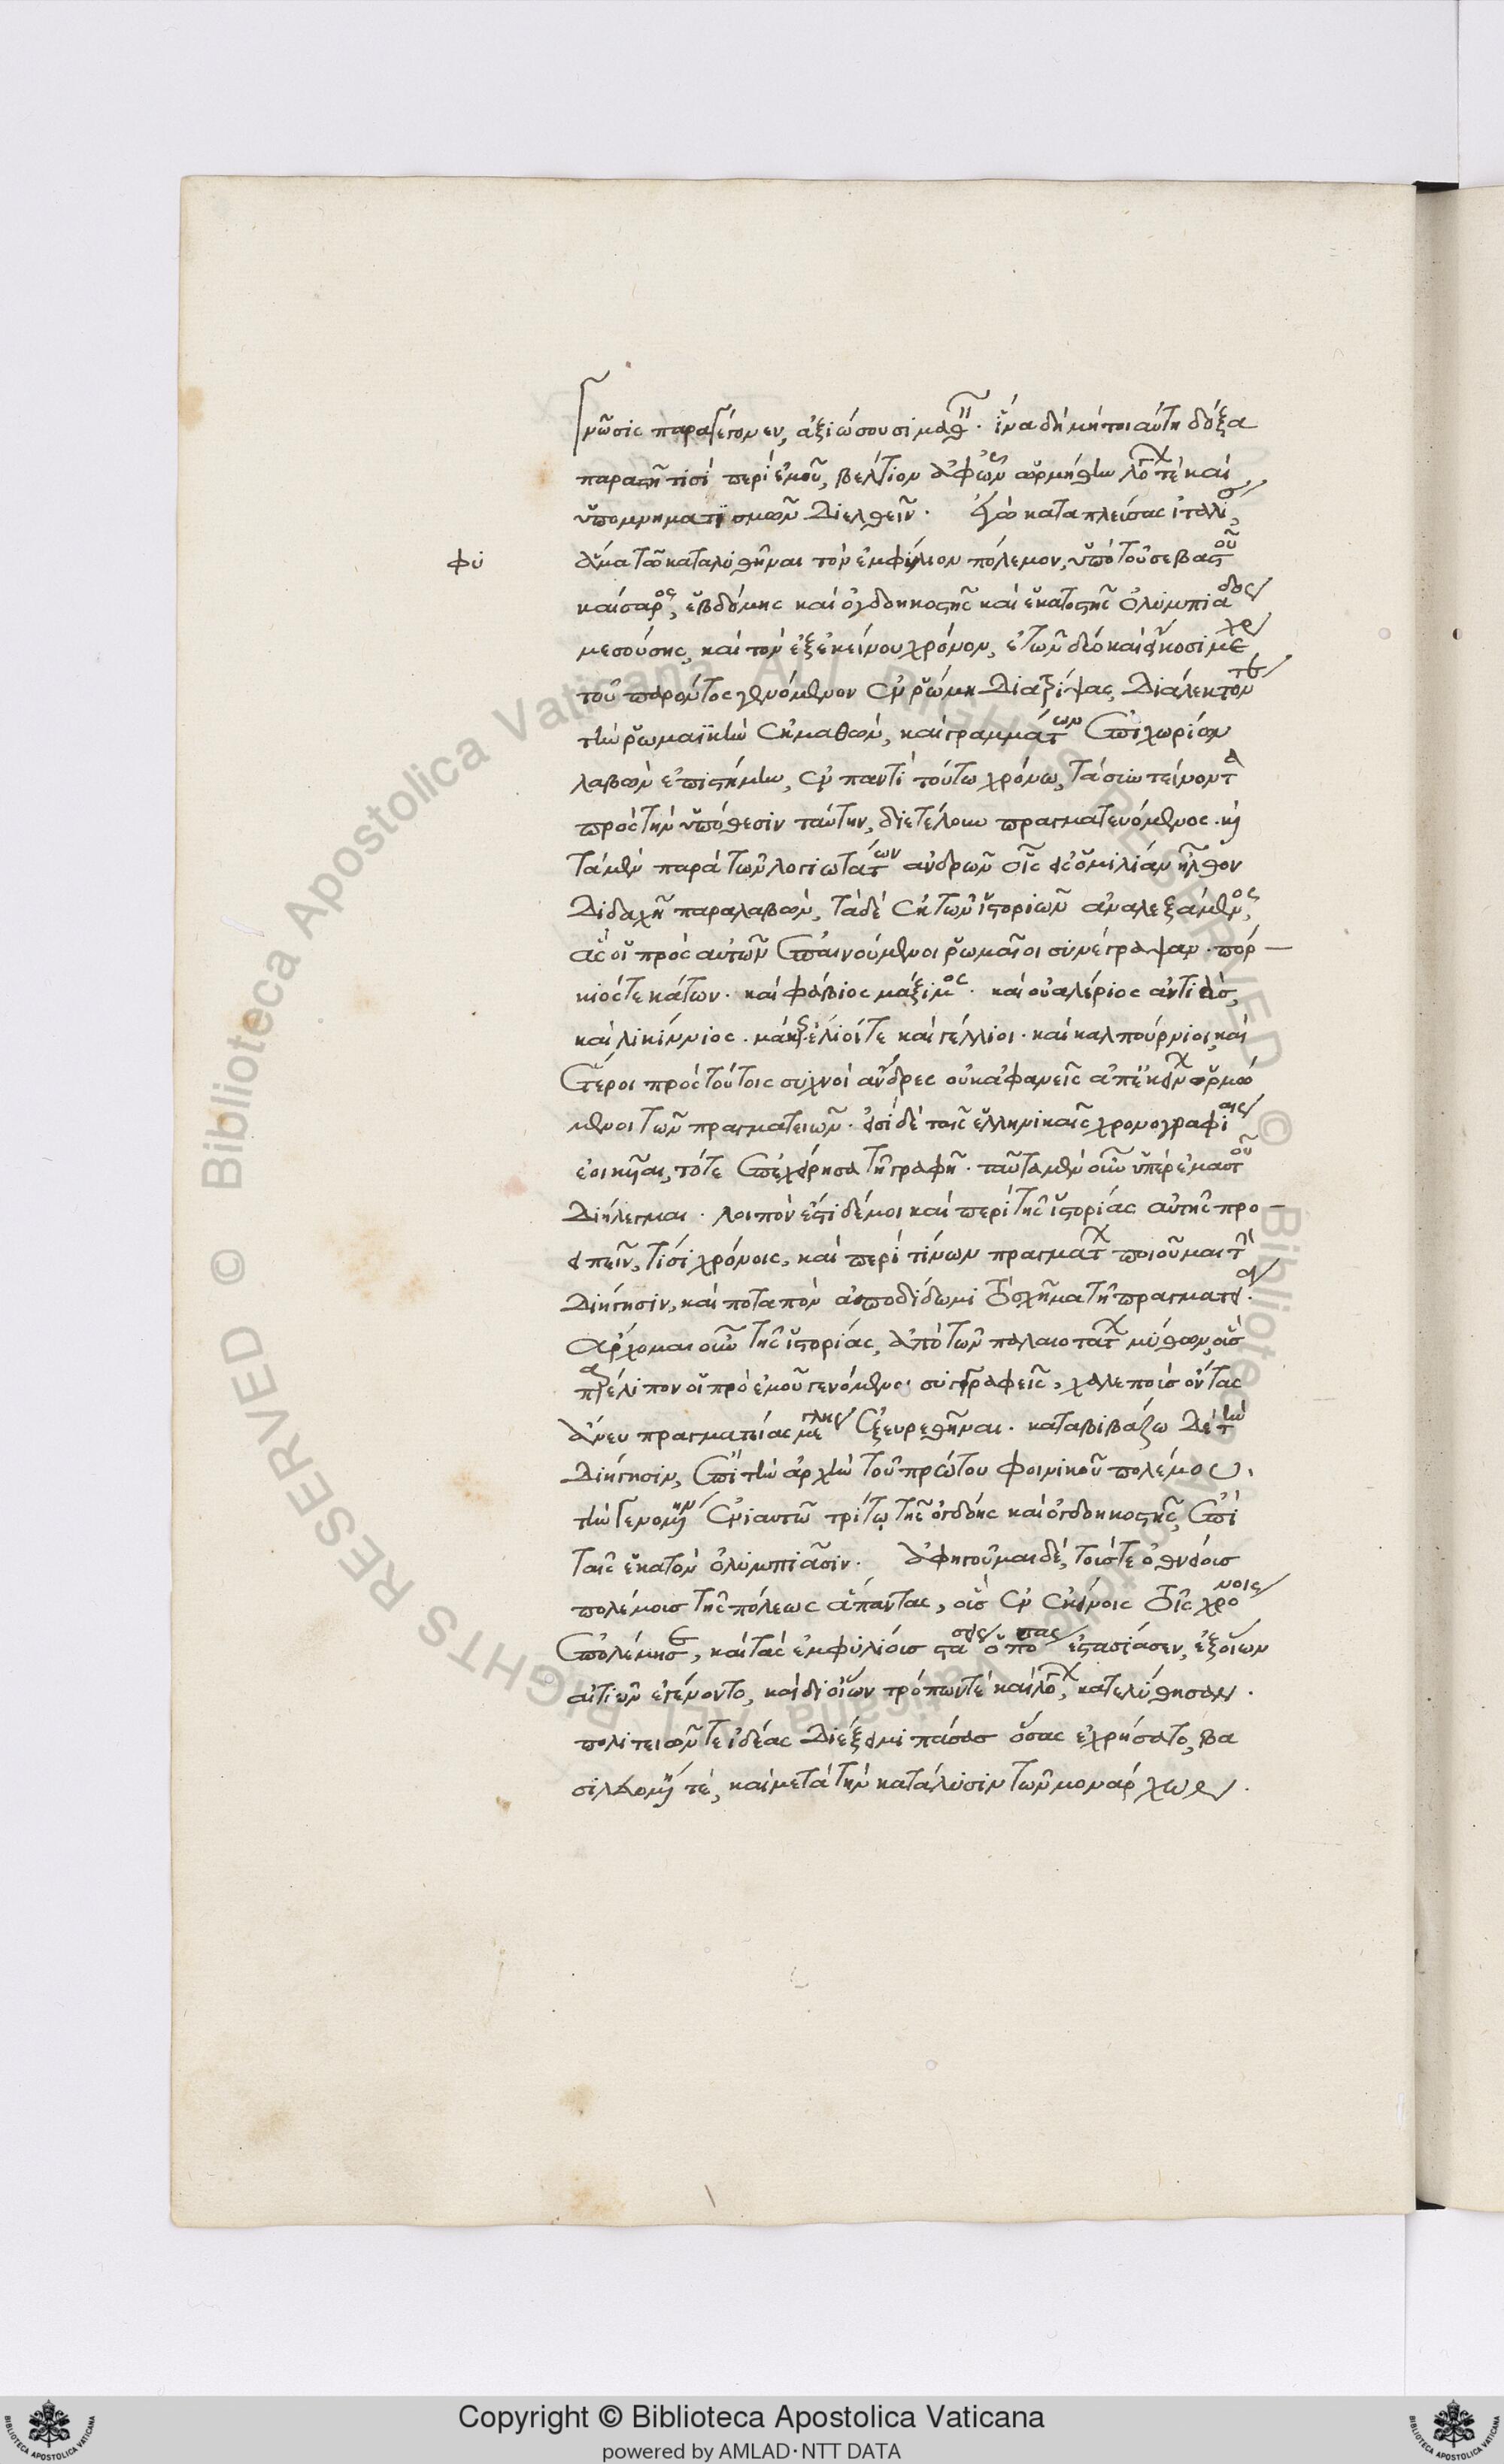 γνῶσις παραγέγονεν, ἀξιώσουσι μαθεῖν. ἵνα δὴ μὴ τοιαύτη δόξα
παραστῇ τισὶ περὶ ἐμοῦ, βέλτιον ἀφ' ὧν ὡρμήθην λόγων τὲ καὶ
ὑπομνηματισμῶν διελθεῖν. ἐγὼ καταπλεύσας ἰταλίας,
φύ
ἅμα τῶ καταλυθῆναι τὸν ἐμφύλιον πόλεμον, ὑπὸ τοῦ σεβαστοῦ
καίσαρος, ἑβδόμης καὶ ὀγδοηκοστῆς καὶ ἑκατοστῆς ὀλυμπιάδος
μεσούσης, καὶ τὸν ἐξ ἐκείνου χρόνον, ἐτῶν δύο καὶ εἴκοσι μέχρι
τοῦ παρόντος γενόμενον ἐν ῥώμη διατρίψας, διάλεκτόν τε
τὴν ῥωμαϊκὴν ἐκμαθὼν, καὶ γραμμάτων ἐπιχωρίων
λαβὼν ἐπιστήμην, ἐν παντὶ τούτω χρόνω, τὰ συντείνοντα
πρὸς τὴν ὑπόθεσιν ταύτην, διετέλουν πραγματευόμενος. καὶ
τὰ μὲν παρὰ τῶν λογιωτάτων ἀνδρῶν οἷς εἰς ὁμιλίαν ἦλθον
διδαχῆ παραλαβὼν, τὰ δὲ ἐκ τῶν ἱστοριῶν ἀναλεξάμενος,
ἃς οἱ πρὸς αὐτῶν ἐπαινούμενοι ῥωμαῖοι συνέγραψαν. πόρ-
κιός τε κάτων. καὶ φάβιος μάξιμος. καὶ οὐαλέριος ἀντιεὺς,
καὶ λικίννιος. μάκερ. ἔλιοί τε καὶ γέλλιοι. καὶ καλπούρνιοι, καὶ
ἕτεροι πρὸς τούτοις συχνοὶ ἄνδρες οὐκ ἀφανεῖς ἀπ' ἐκείνων ὁρμώ
μενοι τῶν πραγματειῶν. εἰσὶ δὲ ταῖς ἑλληνικαῖς χρονογραφίαις
ἐοικῦαι, τότε ἐπεχείρησα τῆ γραφῆ. ταῦτα μὲν οὖν ὑπὲρ ἐμαυτοῦ
διήλεγμαι. λοιπὸν ἐστὶ δέ μοι καὶ περὶ τῆς ἱστορίας αὐτῆς προ-
ειπεῖν, τίσι χρόνοις, καὶ περὶ τίνων πραγμάτων ποιοῦμαι τὴν
διήγησιν, καὶ ποταπὸν ἀποδίδωμι τὸ σχῆμα τῆ πραγματεία.
ἄρχομαι οὖν τῆς ἱστορίας, ἀπὸ τῶν παλαιοτάτων μύθων, οὓς
παρέλιπον οἱ πρὸ ἐμοῦ γενόμενοι συγγραφεῖς, χαλεποὺς ὄντας
ἄνευ πραγματείας μεγάλης ἐξευρεθῆναι. καταβιβάζω δὲ τὴν
διήγησιν, ἐπὶ τὴν ἀρχὴν τοῦ πρώτου φοινικοῦ πολέμου.
τὴν γενομένην ἐνιαυτῶ τρίτω τῆς ὀγδόης καὶ ὀγδοηκοστῆς, ἐπὶ
ταῖς ἑκατὸν ὀλυμπιᾶσιν. ἀφηγοῦμαι δὲ, τούς τε ὀθνείους
πολέμους τῆς πόλεως ἅπαντας, οὓς ἐν ἐκείνοις τοῖς χρόνοις
ἐπολέμησε, καὶ τὰς ἐμφυλίους στάσεις ὁπόσας ἐστασίασεν, ἐξ οἵων
αἰτιῶν ἐγένοντο, καὶ δι' οἵων τρόπων τὲ καὶ λόγων, κατελύθησαν.
πολιτειῶν τε ἰδέας διέξειμι πάσας ὅσας ἐχρήσατο, βα
σιλευομένη τὲ, καὶ μετὰ τὴν κατάλυσιν τῶν μονάρχων.